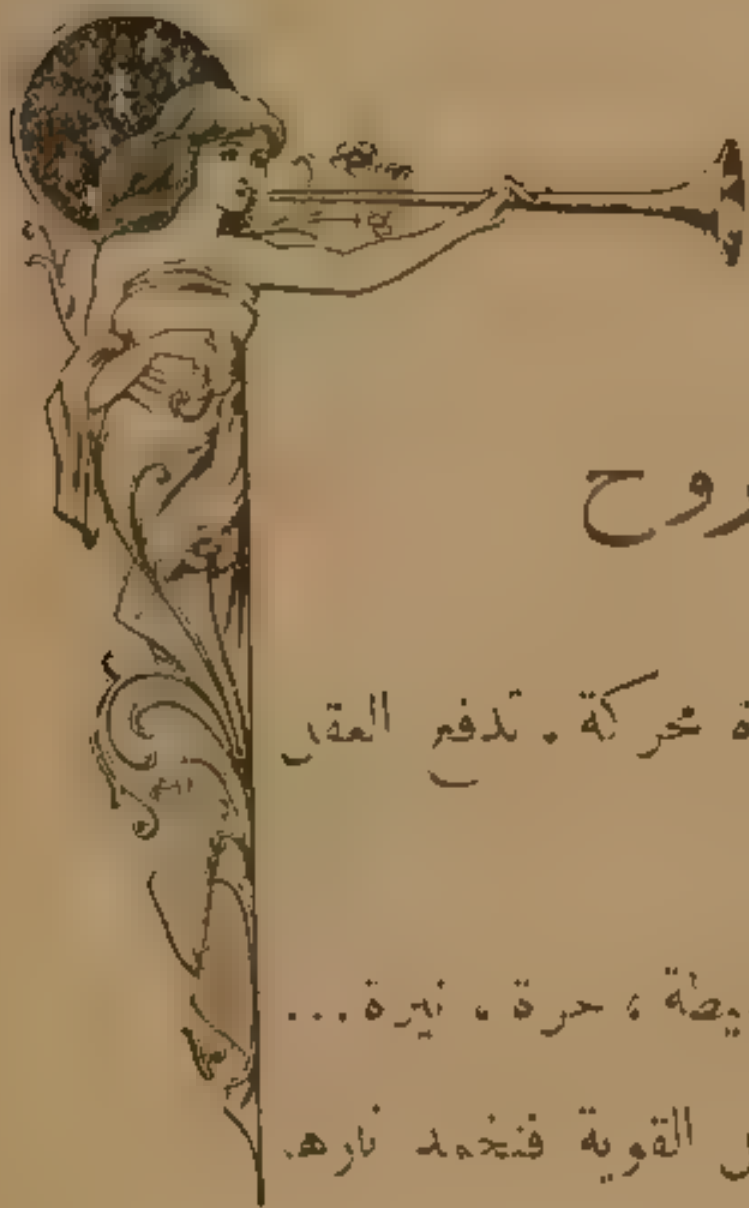 روح
ة محركة . تدفع العقل
يطة ، حرة ، نيرة ...
القوية فتخمد نارها